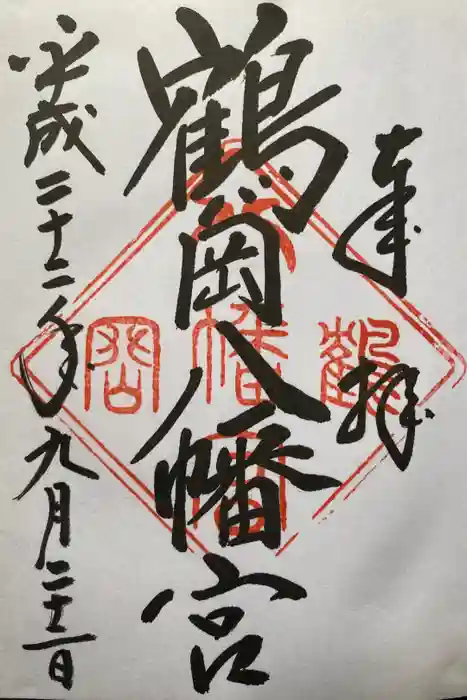 奉拝
鶴岡八幡宮
平成二十二年九月二十一日
鶴
岡
八幡宮